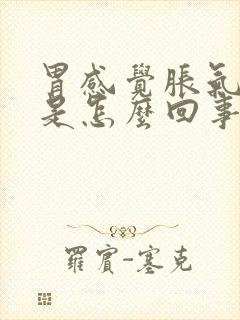 胃感覺脹氣
是怎麼回事
羅賓-塞克